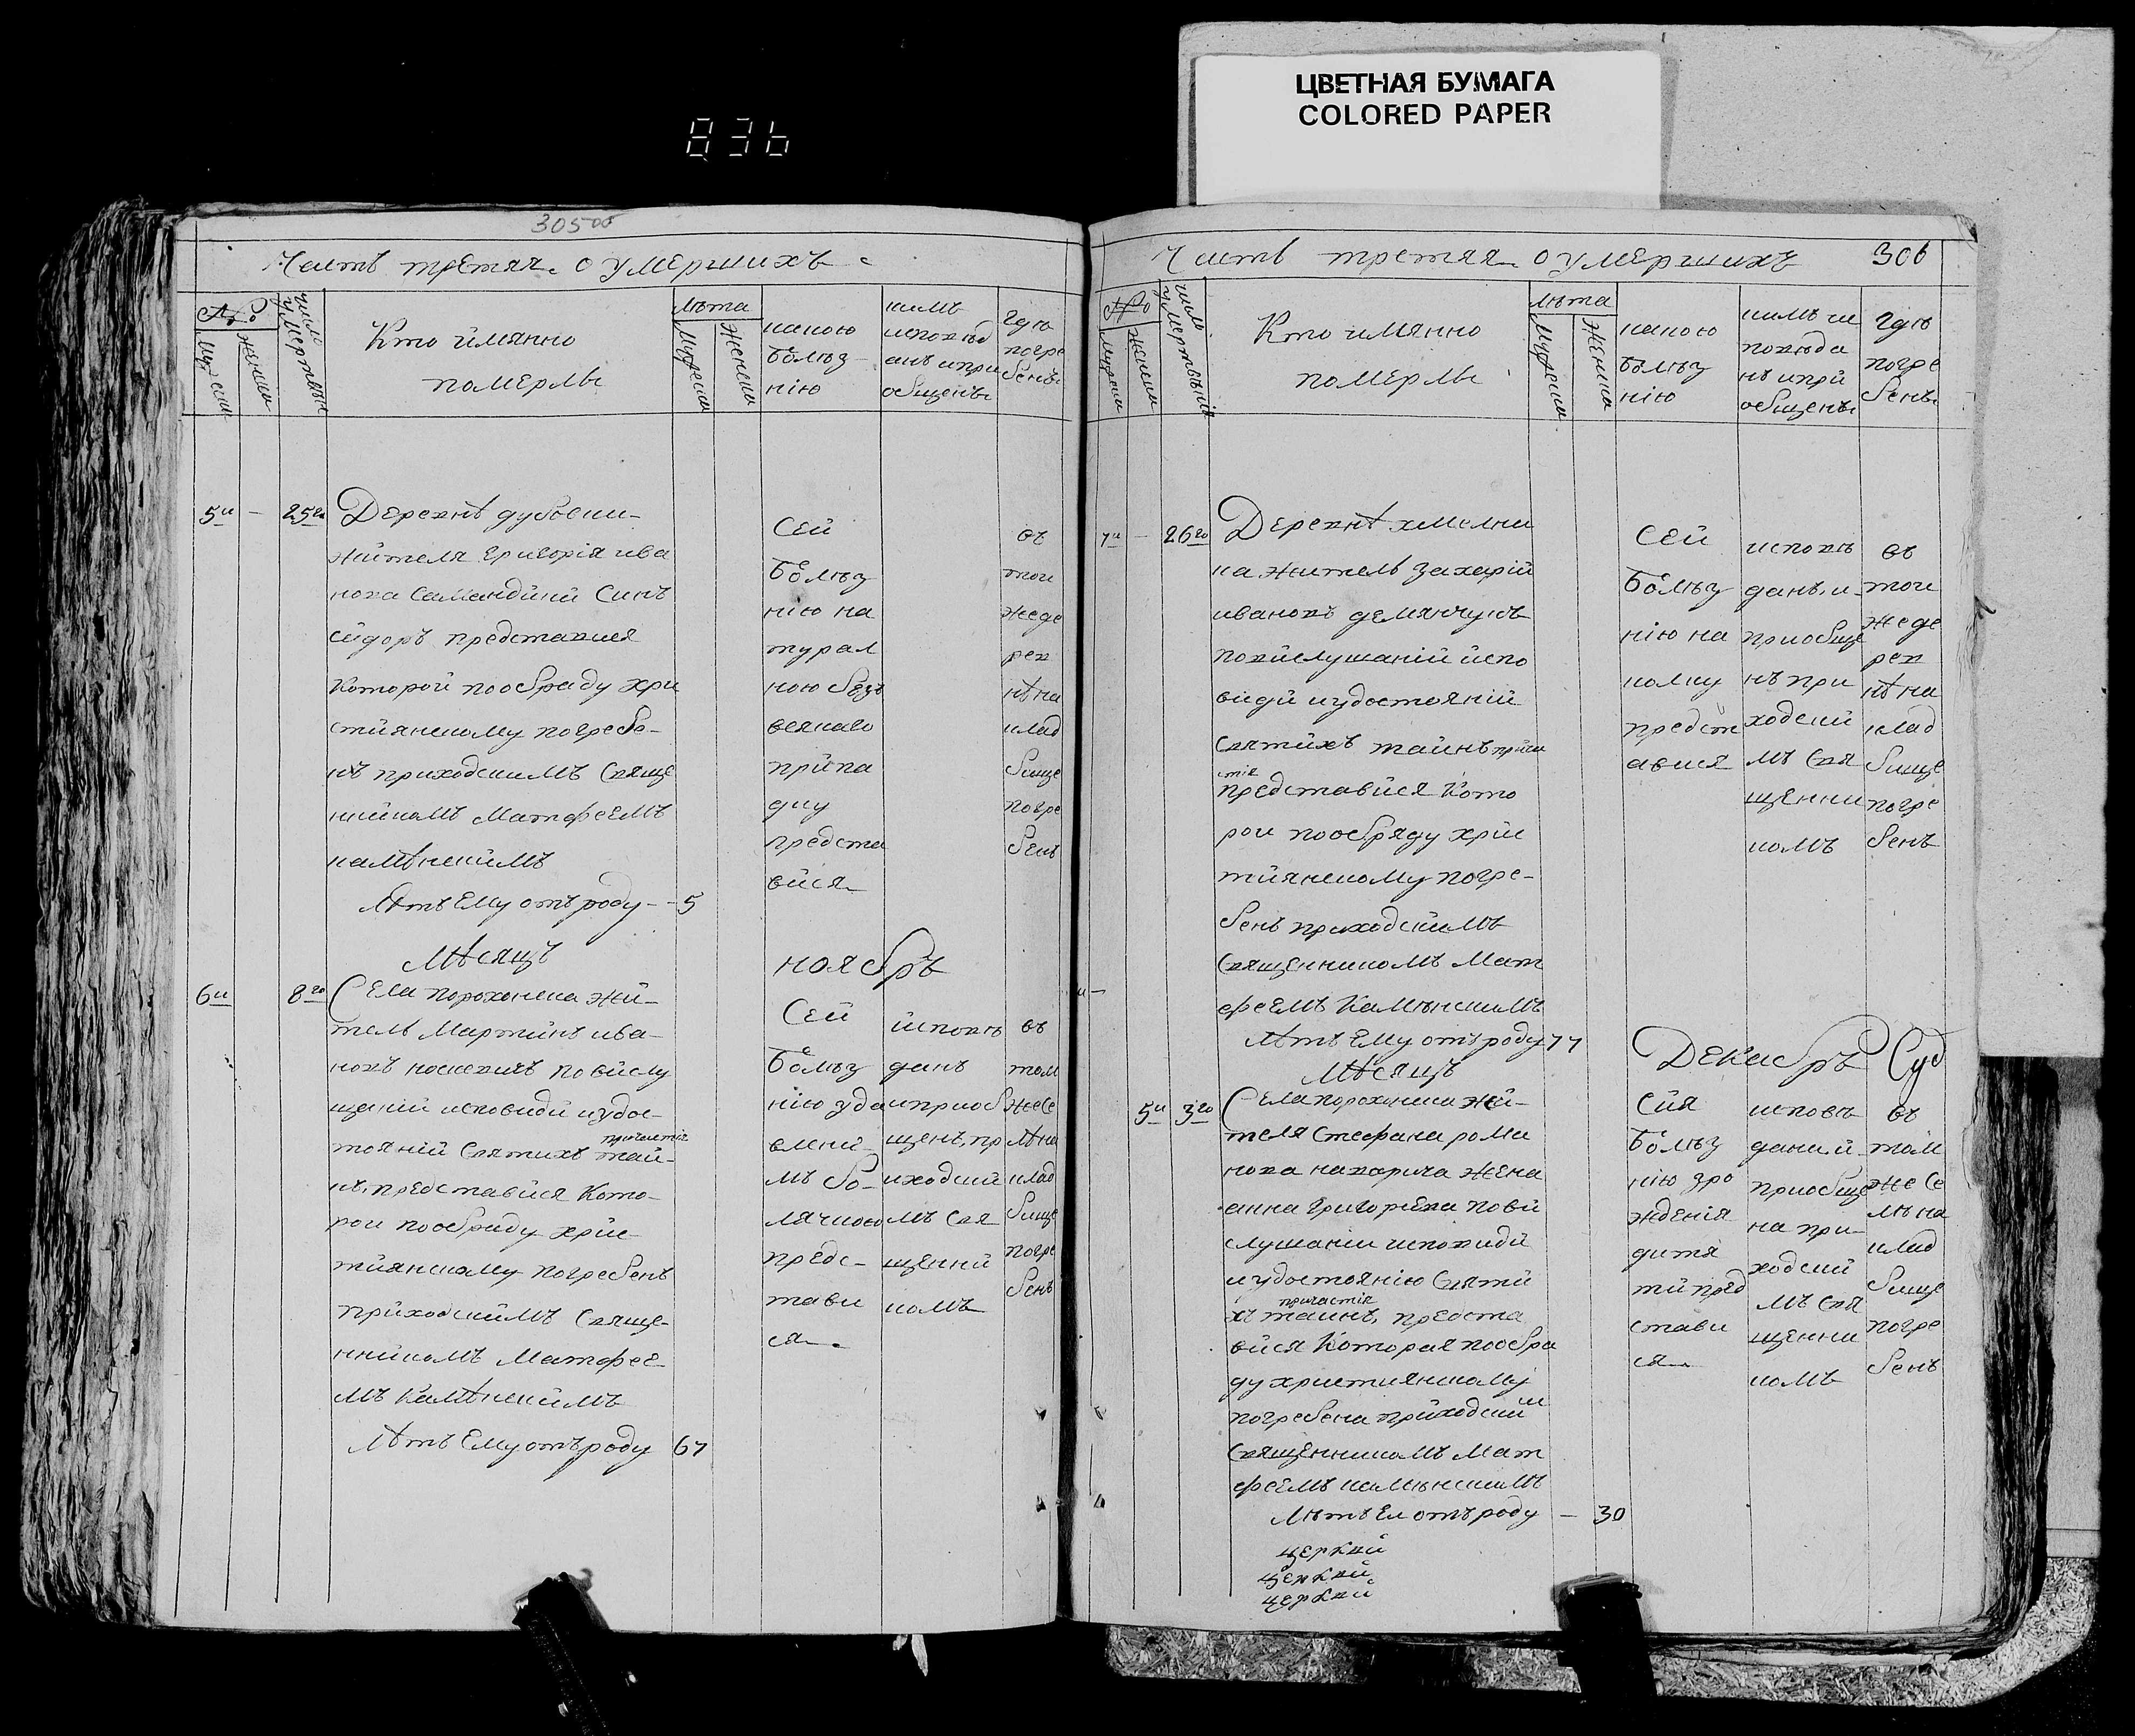 ЦВЕТНАЯ БУМАГА
COLORED PAPER
836
305об
Часть третяя о умершихъ
№
Мужески
Женски
число умертвія
Кто ймянно
померлы
лѣта
Мужески
Женски
какою
болѣз
нію
кимъ
исповѣд
анъ и при
общенъ
гдѣ
погре
бенъ
5й
25го
Деревнѣ дубовки
жйтеля Григорія ива
нова Самандйкй синъ
сйдоръ представися
которой пообраду хри
стйянскому погребе-
нъ приходскимъ Свяще
ннйкомъ Матфеемъ
камѣнскймъ
Лѣтъ Ему отъ роду - - 5
Сей
болѣз
нію на
турал
ною безъ
всякаго
прйпа
дку
предста
вйся
въ
тои
жеде
рев
нѣ на
клад
бище
погре
бенъ
Мѣсяцъ
ноябръ
6й
8го
Села порохонска жй-
тель Мартйнъ ива-
новъ по вйслу
шаній исповиди и удос-
тояній Святихъ тай-
причастія
нъ, представйся Кото-
рои пообраду хрйс-
тйянскому погребенъ
прйходскймъ Свяще-
ннйкомъ Матфее
мъ Камѣнскймъ
Лѣтъ Ему отъ роду 67
Сей
болѣз
нію уда
влені-
мъ бо-
лячкою
предс-
тави
ся
йсповѣ
данъ
иприоб
щенъ, пр
иходскй
мъ Свя
щеннй
комъ
въ
том
же се
лѣ на
клад
бище
погре
бенъ
Часть третяя о умершихъ
306
№
Мужески
Женски
число умертвія
Кто ймянно
померлы
лѣта
Мужески
Женски
какою
болѣз
нію
кимъ ис
повѣда
нъ и прй
общенъ
гдѣ
погре
бенъ
7й
26го
Деревнѣ хмелни
ка житель Захарій
ивановъ демянчукъ
повйслушаній йспо
видй и удостояній
Святйхъ таинъ прйча
стія
представйся Кото
рои пообряду хрйс
тйянскому погре-
бенъ приходскймъ
Священникомъ Мат
феемъ Камѣнскимъ
Лѣтъ Ему отъ роду 77
Сей
болѣз
нію на
колку
предст
авися
исповѣ
данъ, и
приобще
нъ при
ходскй
мъ Свя
щенни
комъ
въ
тои
же де
рев
нѣ на
клад
бище
погре
бенъ
Мѣсяцъ
Декабръ
5й
3го
Села порохонска жй-
теля Стефана рома
нова жена
анна Григоріева повй
слушаніи исповиди
и удостоянію Святи
причастія
хъ таинъ, предста
вйся Которая пообра
ду християнскому
погребена прйходский
Священникомъ Мат
феемъ камѣнскимъ
Лѣтъ Еи отъ роду - 30
Сйя
болѣз
нію зро
жденія
дитя
тй пред
стави
ся
исповѣ
дани й
приобще
на при-
ходскй
мъ Свя
щенни
комъ
въ
том
же се
лѣ на
клад
бище
погре
бенъ
церквй
церквй
церквй